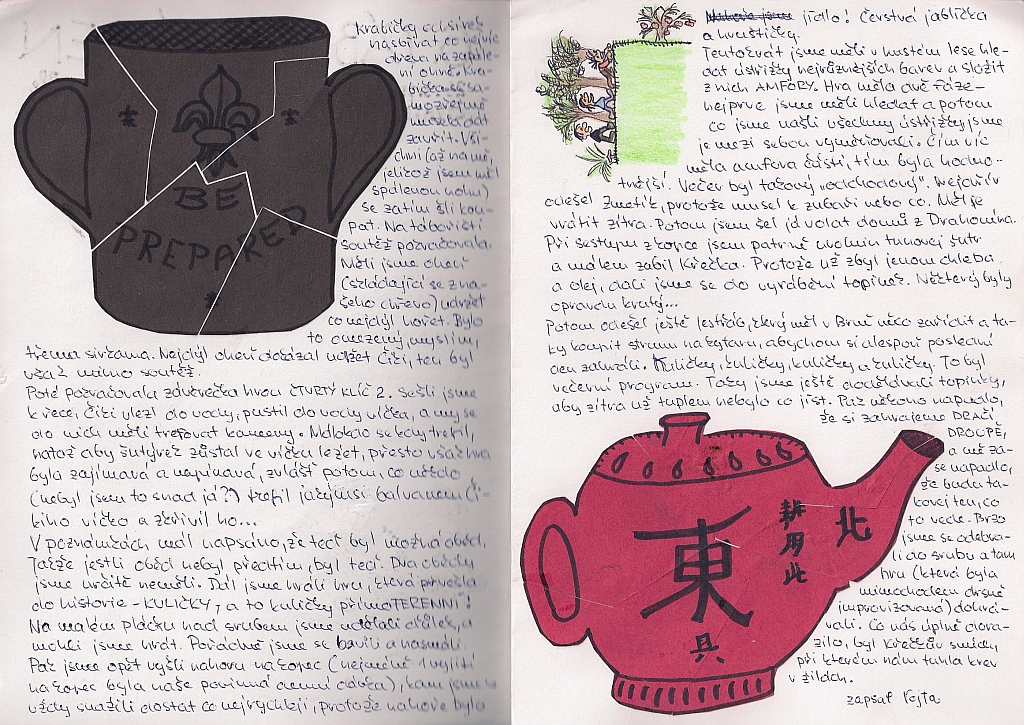 krabičky od sirek
nasbírat co nejvíc
dřeva na zapále-
ní ohně. Kra-
bička se sa-
mozřejmě
musela dát
zavřít. Vši-
chni (až na mě,
jelikož jsem měl
spálenou nohu)
se zatím šli kou-
pat. Na tábořišti
soutěž pokračovala.
Měli jsme oheň
(skládající se z na-
šeho dřeva) udržet
co nejdýl hořet. Bylo
to omezený, myslím,
třema sirkama. Nejdýl oheň dokázal udržet Čiči, ten byl
však mimo soutěž.
Poté pokračovala závěrečka hrou ČTVRTÝ KLÍČ 2. Sešli jsme
k řece, Čiči vlezl do vody, pustil do vody víčka, a my se
do nich měli trefovat kameny. Málokdo se kdy trefil,
natož aby šutýrek zůstal ve víčku ležet, přesto však hra
byla zajímavá a napínavá, zvlášť potom, co někdo
(nebyl jsem to snad já?) trefil jakýmsi balvanem Či-
kiho víčko a zkřivil ho...
V poznámkách mám napsáno, že teď byl možná oběd.
Takže jestli oběd nebyl předtím, byl teď. Dva obědy
jsme určitě neměli. Dál jsme hráli hru, která přivedla
do historie - KULIČKY, a to kuličky přímo TERENNÍ!
Na malém plácku nad srubem jsme udělali důlek, a
mohli jsme hrát. Pořádně jsme se bavili a nasmáli.
Pak jsme opět vyšli nahoru na kopec (nejméně 1 vylití
na kopec byla naše povinná denní dávka), kam jsme
vždy snažili dostat co nejrychleji, protože nahoře bylo
BE
PREPARED
jídlo! Čerstvá jablíčka
a hruštičky.
Tentokrát jsme měli v hustém lese hle-
dat ústřižky nejrůznějších barev a složit
z nich AMFORY. Hra měla dvě fáze -
nejprve jsme měli hledat a potom
co jsme našli všechny ústřižky jsme
je mezi sebou vyměňovali. Čím víc
měla amfora částí, tím byla hodno-
tnější. Večer byl takový „odchodový". Nejdřív
odešel Zmetík, protože musel k zubaři nebo co. Měl se
vrátit zítra. Potom jsem šel já volat domů z Drahonína.
Při sestupu z kopce jsem patrně uvolnil tunovej šutr
a málem zabil Křečka. Protože už zbyl jenom chleba
a olej, dali jsme se do vyrábění topinek. Některý byly
opravdu kratý...
Potom odešel ještě Jestřáb, který měl v Brně něco zařídit a ta-
ky koupit strunu na kytaru, abychom si alespoň poslední
den zahráli. Kuličky, kuličky, kuličky a kuličky. To byl
večerní program. Taky jsme ještě dodělávali topinky,
aby zítra už tuplem nebylo co jíst. Pak někoho napadlo,
že si zahrajeme DRAČÍ
DROUPĚ,
a mě za-
se napadlo,
že bude ta-
kovej ten, co
to vede. Brzo
jsme se odebra-
li do srubu a tam
hru (která byla
mimochodem drsně
improvizovaná) dohrá-
vali. Co nás úplně dora-
zilo, byl Křečkův smích,
při kterém nám tuhla krev
v žilách.
zapsal Vojta
東
耕用此
北
具